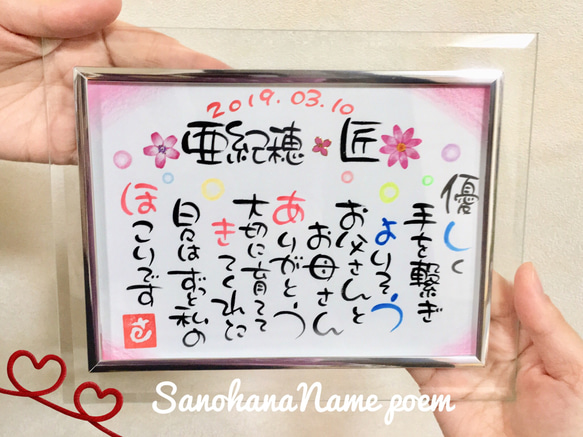 2019.03.10
亜紀穂 匠
優しく
手を繋ぎ
よりそう
お父さんと
お母さん
ありがとう
大切に育てて
きてくれた
日々はずっと私の
ほこりです
SanohanaName poem